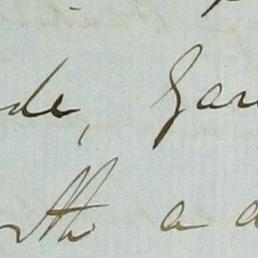 de, Gar
rth a a